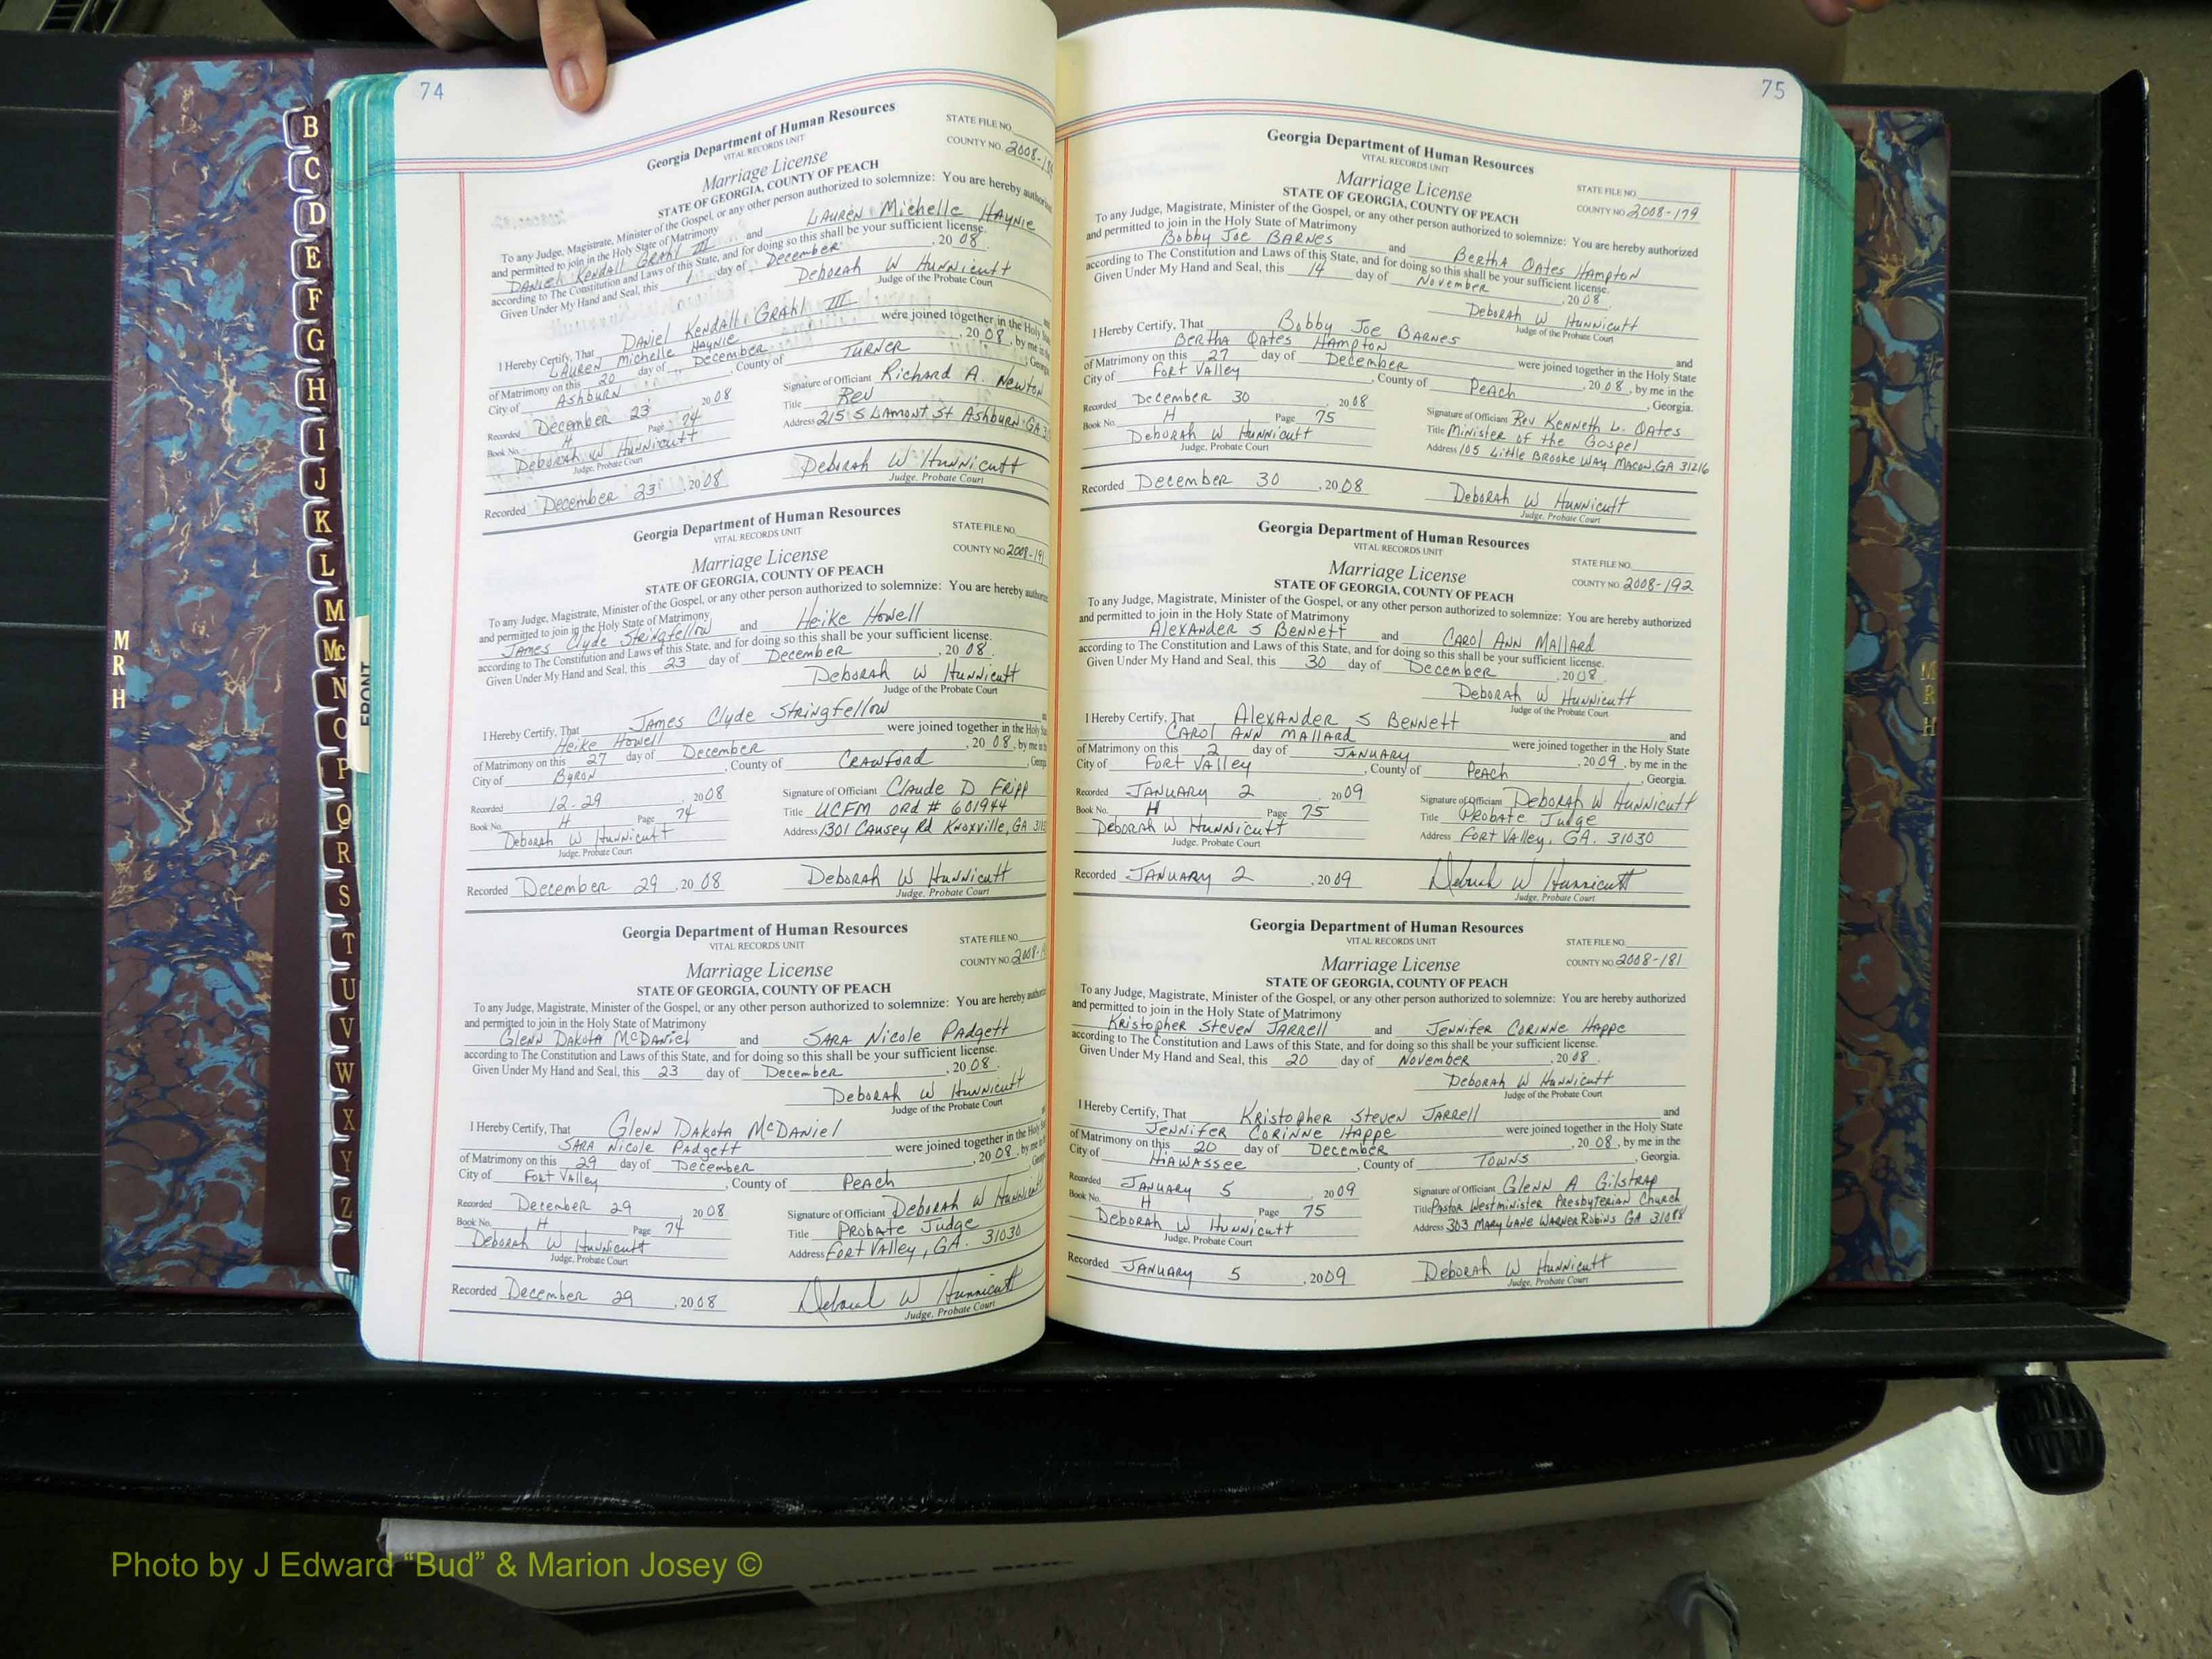 74
Georgia Department of Human Resources
VITAL RECORDS UNIT
STATE FILE NO.
COUNTY NO. 2008-
Marriage License
STATE OF GEORGIA, COUNTY OF PEACH
To any Judge, Magistrate, Minister of the Gospel, or any other person authorized to solemnize: You are hereby
and permitted to join in the Holy State of Matrimony
Daniel Kendall Grahl III and Lauren Michelle Haynie
according to The Constitution and Laws of this State, and for doing so this shall be your sufficient license.
Given Under My Hand and Seal, this day of December, 2008.
Deborah W Hunnicutt
Judge of the Probate Court
I Hereby Certify, That Daniel Kendall Grahl III
Lauren Michelle Haynie were joined together in the Holy
of Matrimony on this 20 day of December, 2008, by me in
City of Ashburn, County of Turner
Recorded December 23 2008 Signature of Officiant Richard A. Newton
Book No. H Page 74 Title Rev
Deborah W Hunnicutt Address 215 S Lamont St Ashburn GA
Judge, Probate Court
Recorded December 23, 2008 Deborah W Hunnicutt
Judge, Probate Court
Georgia Department of Human Resources
VITAL RECORDS UNIT
STATE FILE NO.
COUNTY NO. 2008-191
Marriage License
STATE OF GEORGIA, COUNTY OF PEACH
To any Judge, Magistrate, Minister of the Gospel, or any other person authorized to solemnize: You are hereby
and permitted to join in the Holy State of Matrimony
James Clyde Stringfellow and Heike Howell
according to The Constitution and Laws of this State, and for doing so this shall be your sufficient license.
Given Under My Hand and Seal, this 23 day of December, 2008.
Deborah W Hunnicutt
Judge of the Probate Court
I Hereby Certify, That James Clyde Stringfellow
Heike Howell were joined together in the Holy
of Matrimony on this 27 day of December, 2008, by me in
City of Byron, County of Crawford
Recorded 12-29 2008 Signature of Officiant Claude D Fripp
Book No. H Page 74 Title UCFM ord # 601944
Deborah W Hunnicutt Address 1301 Causey Rd Knoxville, GA
Judge, Probate Court
Recorded December 29, 2008 Deborah W Hunnicutt
Judge, Probate Court
Georgia Department of Human Resources
VITAL RECORDS UNIT
STATE FILE NO.
COUNTY NO. 2008-
Marriage License
STATE OF GEORGIA, COUNTY OF PEACH
To any Judge, Magistrate, Minister of the Gospel, or any other person authorized to solemnize: You are hereby
and permitted to join in the Holy State of Matrimony
Glenn Dakota McDaniel and Sara Nicole Padgett
according to The Constitution and Laws of this State, and for doing so this shall be your sufficient license.
Given Under My Hand and Seal, this 23 day of December, 2008.
Deborah W Hunnicutt
Judge of the Probate Court
I Hereby Certify, That Glenn Dakota McDaniel
Sara Nicole Padgett were joined together in the Holy
of Matrimony on this 29 day of December, 2008, by me in
City of Fort Valley, County of Peach
Recorded December 29 2008 Signature of Officiant Deborah W Hunnicutt
Book No. H Page 74 Title Probate Judge
Deborah W Hunnicutt Address Fort Valley, GA. 31030
Judge, Probate Court
Recorded December 29, 2008 Deborah W Hunnicutt
Judge, Probate Court
75
Georgia Department of Human Resources
VITAL RECORDS UNIT
STATE FILE NO.
COUNTY NO. 2008-179
Marriage License
STATE OF GEORGIA, COUNTY OF PEACH
To any Judge, Magistrate, Minister of the Gospel, or any other person authorized to solemnize: You are hereby authorized
and permitted to join in the Holy State of Matrimony
Bobby Joe Barnes and Bertha Oates Hampton
according to The Constitution and Laws of this State, and for doing so this shall be your sufficient license.
Given Under My Hand and Seal, this 14 day of November, 2008.
Deborah W Hunnicutt
Judge of the Probate Court
I Hereby Certify, That Bobby Joe Barnes and
Bertha Oates Hampton were joined together in the Holy State
of Matrimony on this 27 day of December, 2008, by me in the
City of Fort Valley, County of Peach, Georgia.
Recorded December 30 2008 Signature of Officiant Rev Kenneth L. Oates
Book No. H Page 75 Title Minister of the Gospel
Deborah W Hunnicutt Address 105 Little Brooke Way Macon, GA 31216
Judge, Probate Court
Recorded December 30, 2008 Deborah W Hunnicutt
Judge, Probate Court
Georgia Department of Human Resources
VITAL RECORDS UNIT
STATE FILE NO.
COUNTY NO. 2008-192
Marriage License
STATE OF GEORGIA, COUNTY OF PEACH
To any Judge, Magistrate, Minister of the Gospel, or any other person authorized to solemnize: You are hereby authorized
and permitted to join in the Holy State of Matrimony
Alexander S Bennett and Carol Ann Mallard
according to The Constitution and Laws of this State, and for doing so this shall be your sufficient license.
Given Under My Hand and Seal, this 30 day of December, 2008.
Deborah W Hunnicutt
Judge of the Probate Court
I Hereby Certify, That Alexander S Bennett and
Carol Ann Mallard were joined together in the Holy State
of Matrimony on this 2 day of January, 2009, by me in the
City of Fort Valley, County of Peach, Georgia.
Recorded January 2 2009 Signature of Officiant Deborah W Hunnicutt
Book No. H Page 75 Title Probate Judge
Deborah W Hunnicutt Address Fort Valley, GA. 31030
Judge, Probate Court
Recorded January 2, 2009 Deborah W Hunnicutt
Judge, Probate Court
Georgia Department of Human Resources
VITAL RECORDS UNIT
STATE FILE NO.
COUNTY NO. 2008-181
Marriage License
STATE OF GEORGIA, COUNTY OF PEACH
To any Judge, Magistrate, Minister of the Gospel, or any other person authorized to solemnize: You are hereby authorized
and permitted to join in the Holy State of Matrimony
Kristopher Steven Jarrell and Jennifer Corinne Happe
according to The Constitution and Laws of this State, and for doing so this shall be your sufficient license.
Given Under My Hand and Seal, this 20 day of November, 2008.
Deborah W Hunnicutt
Judge of the Probate Court
I Hereby Certify, That Kristopher Steven Jarrell and
Jennifer Corinne Happe were joined together in the Holy State
of Matrimony on this 20 day of December, 2008, by me in the
City of Hiawassee, County of Towns, Georgia.
Recorded January 5 2009 Signature of Officiant Glenn A Gilstrap
Book No. H Page 75 Title Pastor Westminister Presbyterian Church
Deborah W Hunnicutt Address 303 Mary Lane Warner Robins GA 31088
Judge, Probate Court
Recorded January 5, 2009 Deborah W Hunnicutt
Judge, Probate Court
B
C
D
E
F
G
H
I
J
K
L
M
Mc
N
O
P
Q
R
S
T
U
V
W
X
Y
Z
FRONT
M
R
H
M
R
H
Photo by J Edward “Bud” & Marion Josey ©